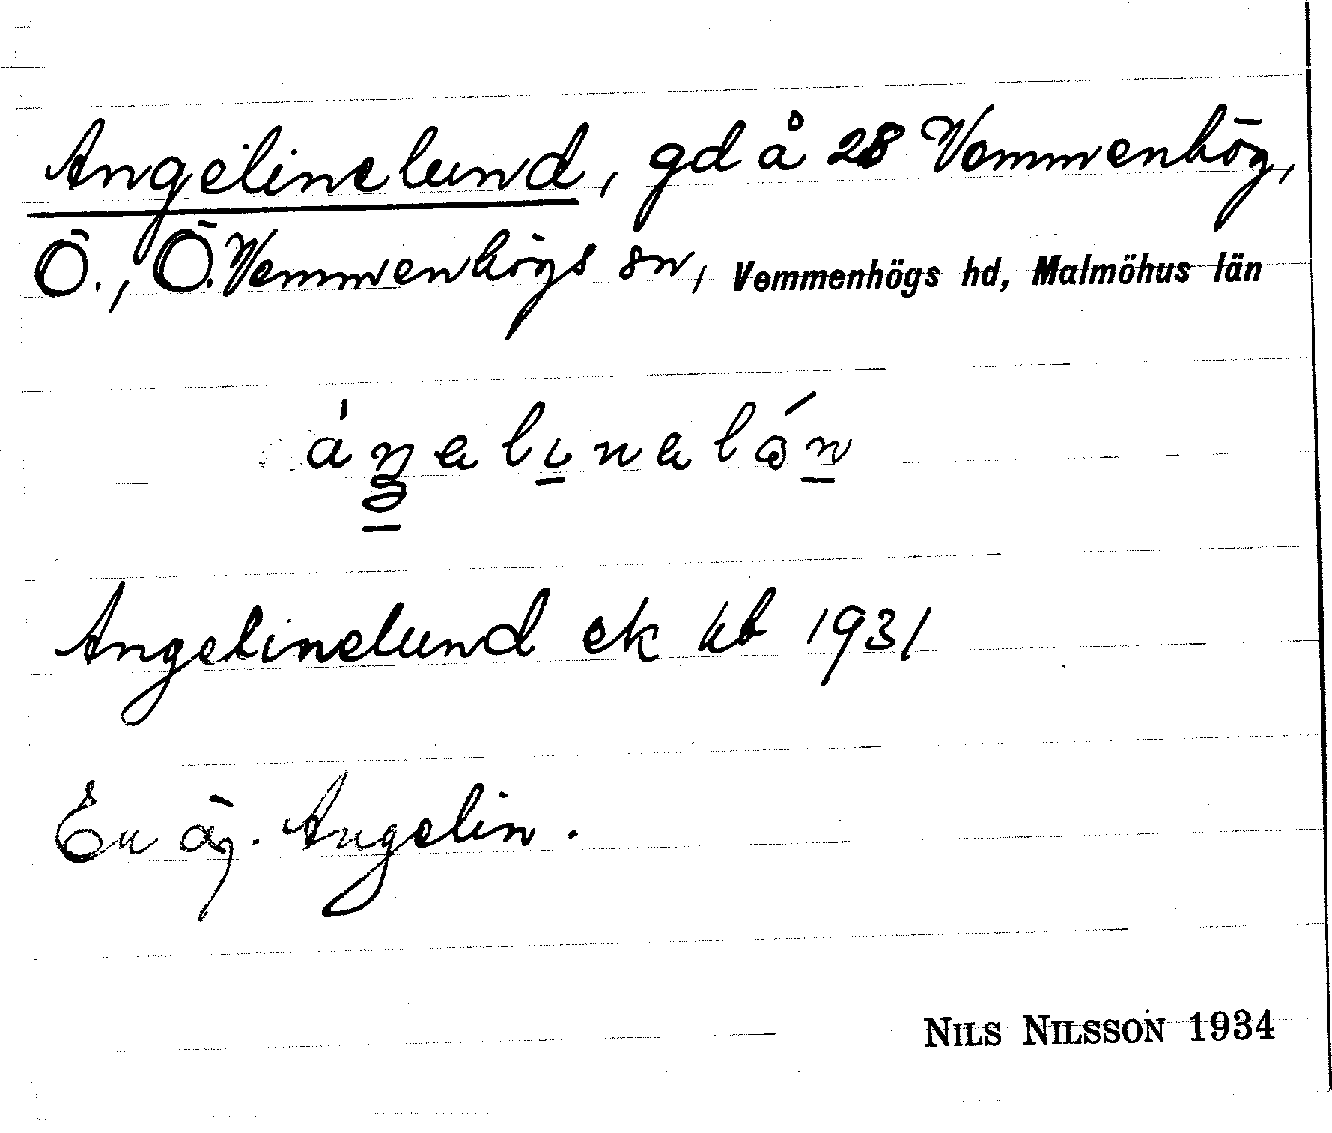 Angelinelund, gd å 28 Vemmenhög,
Ö., Ö. Vemmenhögs sn, Vemmenhögs hd, Malmöhus län
Angelinelund ek kb 1931
En äg. Angelin.
NILS NILSSON 1934